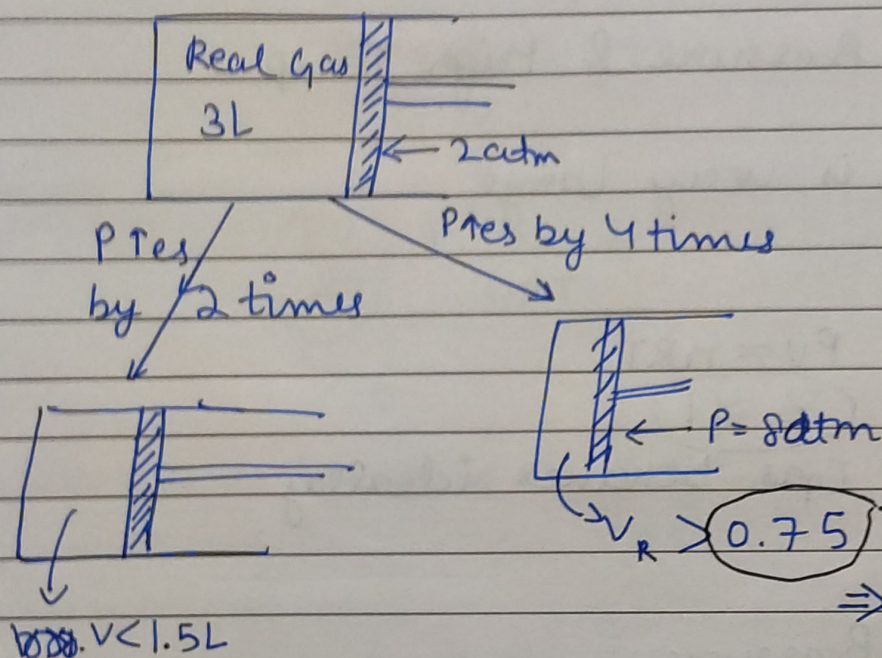 Real Gas
3L
← 2atm
P ↑es
by 2 times
P↑es by 4 times
← P = 8atm
V_R > 0.75
⇒
V < 1.5L